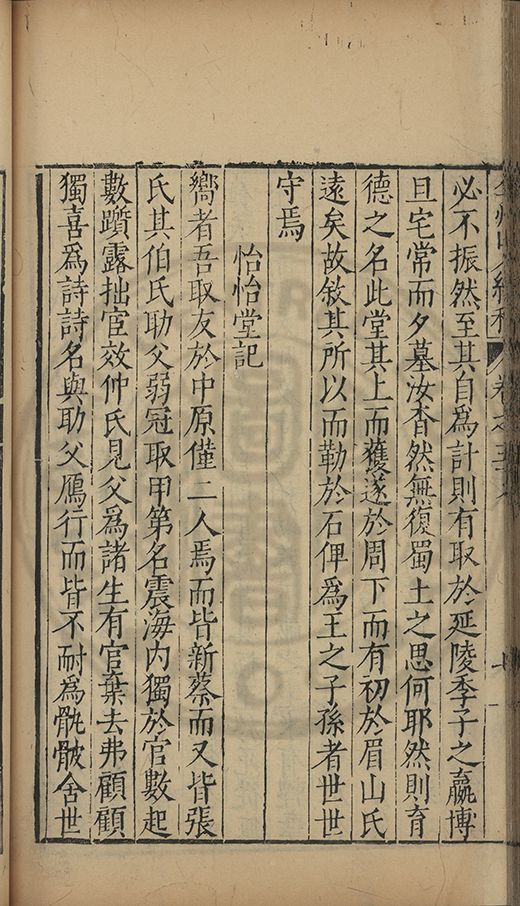 州山人續稿 卷之
必不振然至其自爲計則有取於延陵季子之嬴博
旦宅常而夕墓汝杳然無復蜀土之思何耶然則育
德之名此堂其上而獲遂於周下而有初於眉山氏
遠矣故敘其所以而勒於石俾爲王之子孫者世世
守焉
怡怡堂記
嚮者吾取友於中原僅二人焉而皆新蔡而又皆張
氏其伯氏助父弱冠取甲第名震海内獨於官數起
數躓露拙宦效仲氏見父爲諸生有官棄去弗顧顧
獨喜爲詩詩名與助父鴈行而皆不耐為骫骳舍世